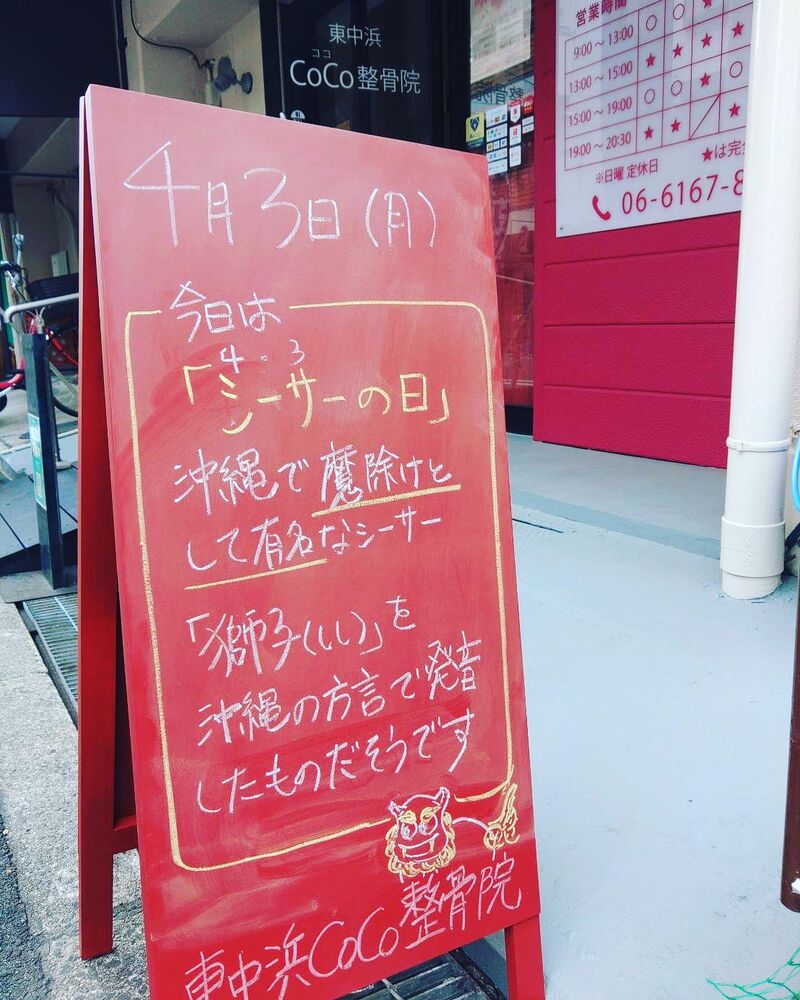 東中浜
ココ
CoCo整骨院
営業時間
9:00～13:00 ○ ○ ★ ★
13:00～15:00 ★ ★ ★ ★
15:00～19:00 ○ ○ ★ ○
19:00～20:30 ★ ★ ★
★は完全
※日曜 定休日
06-6167-8
4月3日(月)
今日は
4・3
「シーサーの日」
沖縄で魔除けと
して有名なシーサー
「獅子(しし)」を
沖縄の方言で発音
したものだそうです
東中浜CoCo整骨院